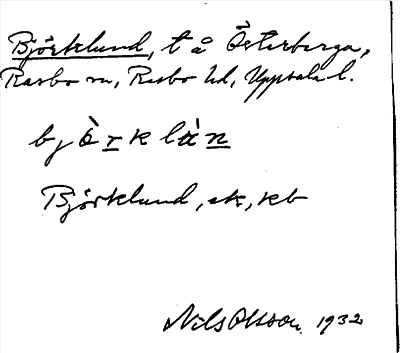 Björklund, t å Österberga,
Rasbo sn, Rasbo hd, Uppsala l.
bjö̀rklàn
Björklund, ek, kb
Nils Olsson 1932